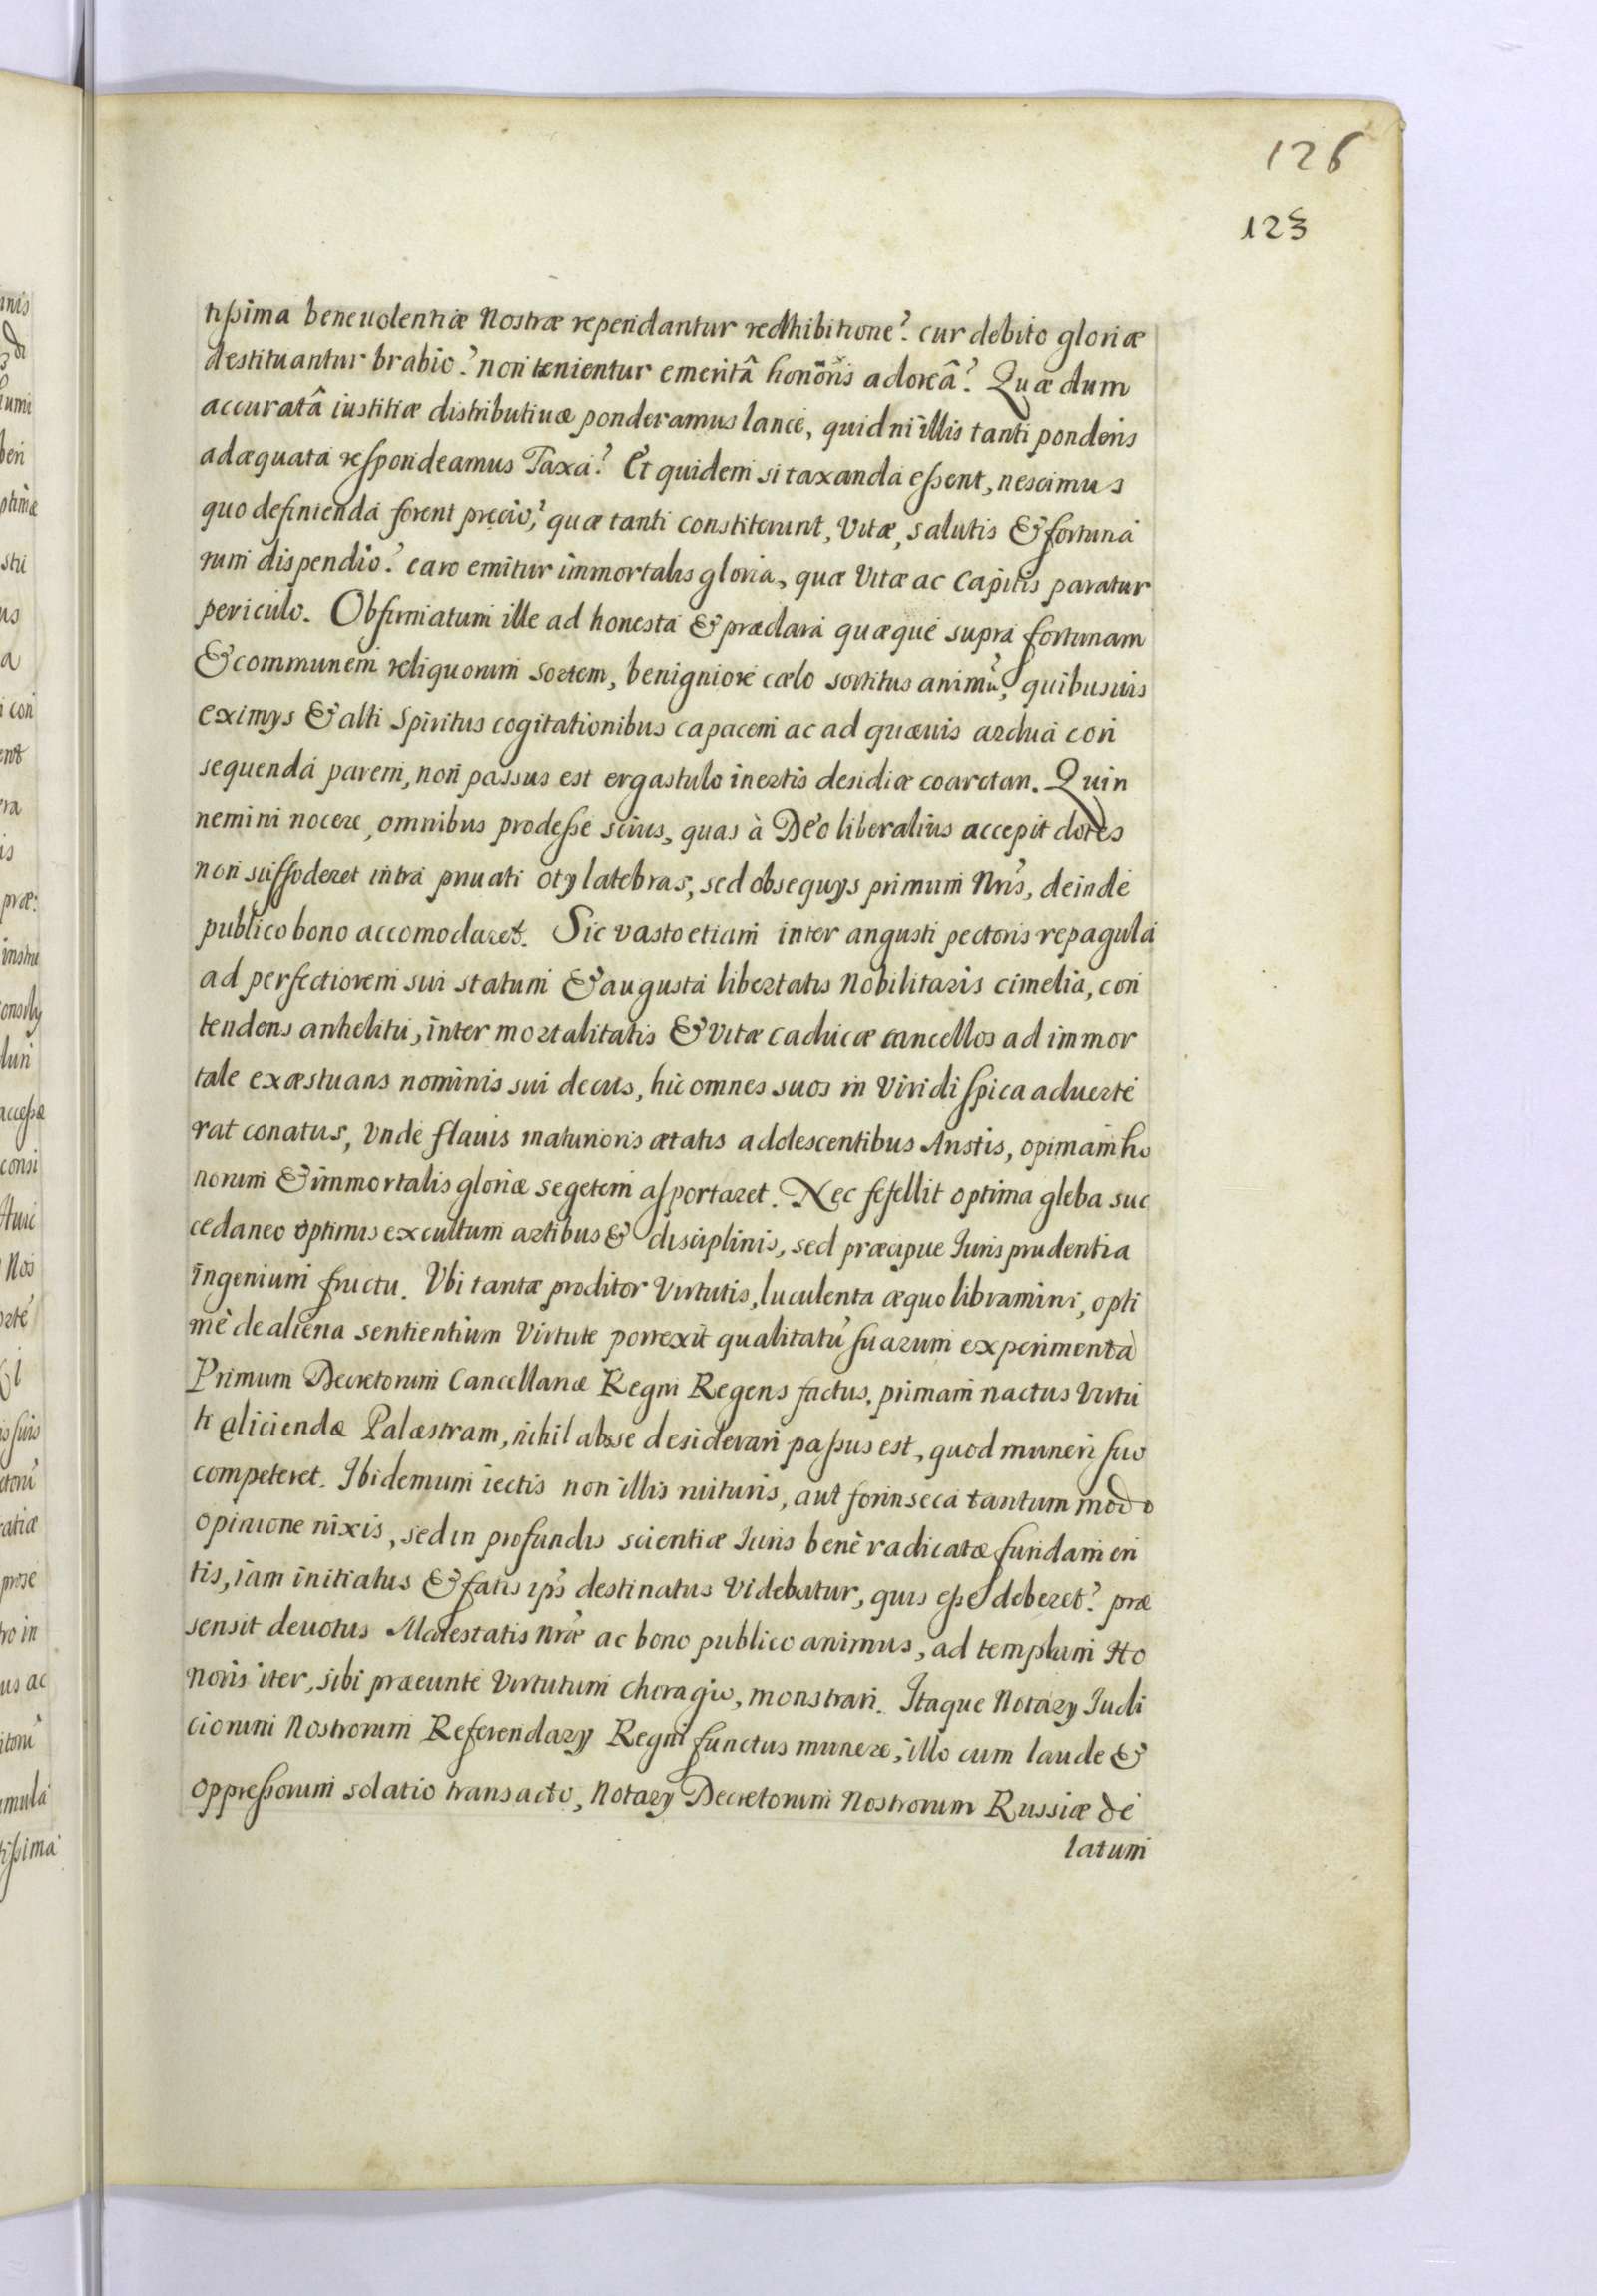 126
123
tissima beneuolentiæ Nostræ rependantur redhibitione? cur debito gloriæ
destituantur brabio? non tenientur emeritâ honoris adoreâ? Quæ dum
accuratâ iustitiæ distributiuæ ponderamus lance, quidni illis tanti ponderis
adæquata respondeamus Taxa? Et quidem si taxanda essent, nescimus
quo definienda forent precio, quæ tanti constiterunt, vitæ, salutis & fortuna
rum dispendio? caro emitur immortalis gloria, quæ vitæ ac Capitis paratur
periculo. Obfirmatum ille ad honesta & præclara quæque supra fortunam
& communem reliquorum sortem, benigniore cælo sortitus animũ, quibusuis
eximys & alti Spiritus cogitationibus capacem ac ad quæuis ardua con
sequenda parem, non passus est ergastulo inertis desidiæ coarctari. Quin
nemini nocere, omnibus prodesse scius, quas à Deo liberalius accepit dotes
non suffoderet intra priuati oty latebras, sed obsequys primum Nris, deinde
publico bono accomodaret. Sic vasto etiam inter angusti pectoris repagula
ad perfectiorem sui statum & augusta libertatis Nobilitaris cimelia, con
tendens anhelitu, inter mortalitatis & vitæ caducæ cancellos ad immor
tale exæstuans nominis sui decus, hic omnes suos in viridi spica aduerte
rat conatus, vnde flauis maturioris ætatis adolescentibus Aristis, opimam ho
norum & immortalis gloriæ segetem asportaret. Nec fefellit optima gleba suc
cedaneo optimis excultum artibus & disciplinis, sed præcipue Iurisprudentia
ingenium fructu. Vbi tantæ proditor Virtutis, luculenta æquo libramini, opti
mè de aliena sentientium Virtute porrexit qualitatũ suarum experimenta
Primum Decretorum Cancellariæ Regni Regens factus, primam nactus virtu
ti eliciendæ Palæstram, nihil abs se desiderari passus est, quod muneri suo
competeret. Ibidemum iectis non illis ruituris, aut forinseca tantum modo
opinione nixis, sed in profundis scientiæ Iuris benè radicatæ fundamen
tis, iam initiatus & fatis ip̃s destinatus videbatur, quis esse deberet? præ
sensit deuotus Maiestatis nræ ac bono publico animus, ad templum Ho
noris iter, sibi præeunte Virtutum choragio, monstrari. Itaque Notary Iudi
ciorum Nostrorum Referendary Regni functus munere, illo cum laude &
oppressorum solatio transacto, Notary Decretorum Nostrorum Russiæ de
latum